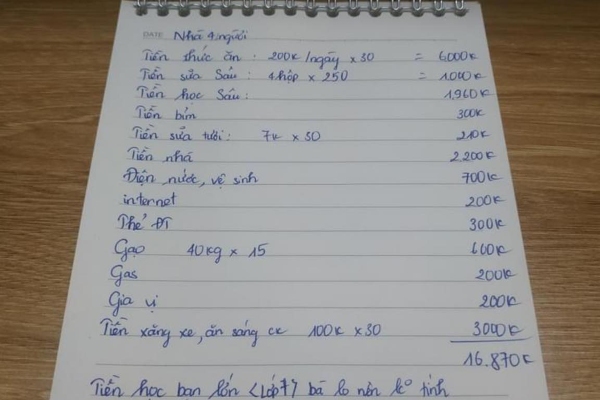 DATE Nhà 4 người
Tiền thức ăn : 200k/ngày x 30 = 6000k
Tiền sữa Sâu : 4 hộp x 250 = 1000k
Tiền học Sâu : 1,960k
Tiền bỉm 300k
Tiền sữa tươi : 7k x 30 210k
Tiền nhà 2,200k
Điện nước, vệ sinh 700k
internet 200k
Thẻ ĐT 300k
Gạo 40kg x 15 600k
Gas 200k
Gia vị 200k
Tiền xăng xe, ăn sáng ck 100k x 30 3000k
16.870k
Tiền học bạn lớn <Lớp 7> bà lo nên ko tính